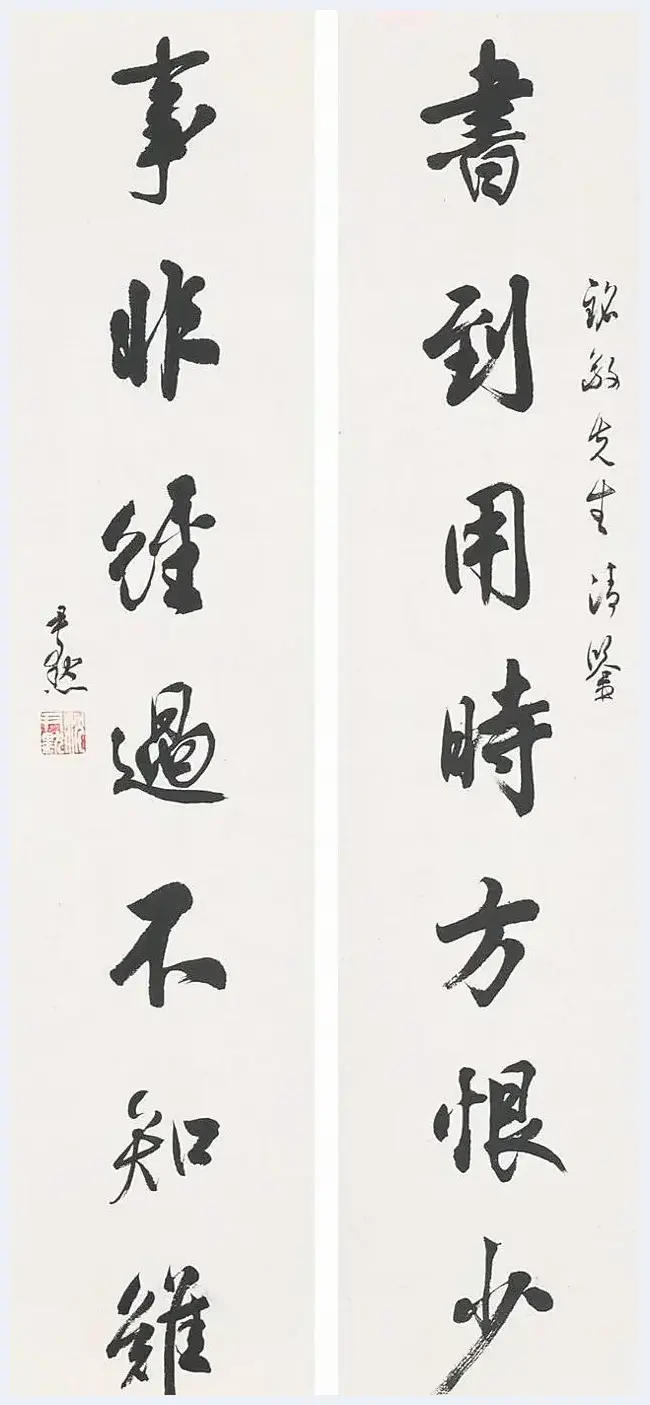 銘先生清鑒
書到用時方恨少
事非經過不知難
尹默